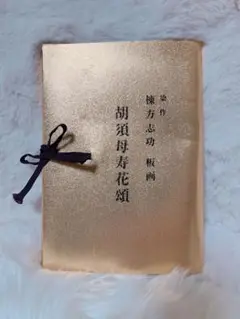 染作
棟方志功 板画
胡須母寿花頌